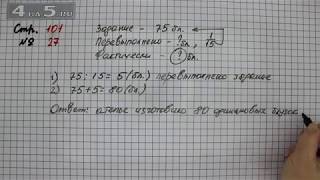 4 da 5.RU
Стр. 101 Задание - 75 бл.
№ 27 Перевыполнено - ? бл., 1/15
Фактически - ? бл.
1) 75 : 15 = 5 (бл.) перевыполнено задание
2) 75 + 5 = 80 (бл.)
Ответ: ателье изготовило 80 одинаковых блузок